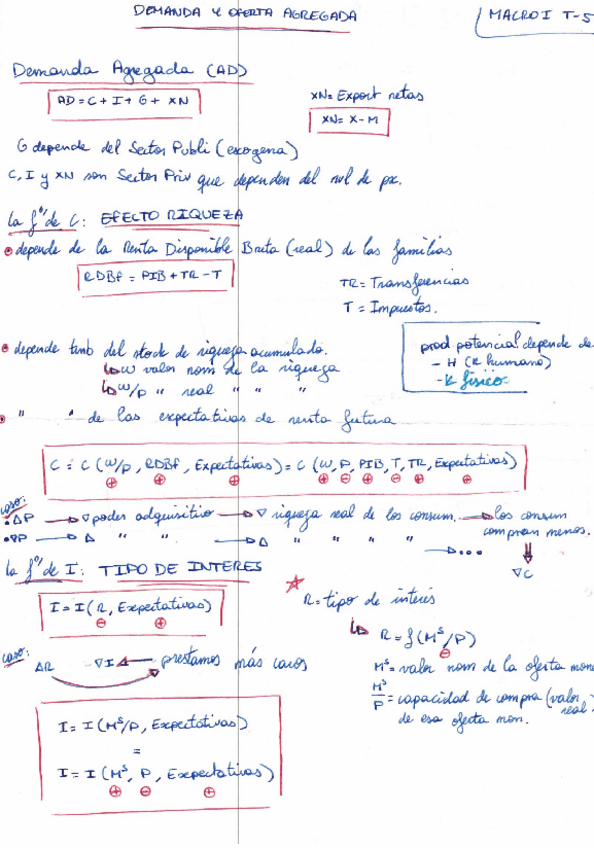 DEMANDA Y OFERTA AGREGADA
MACRO I T-5
Demanda Agregada (AD)
AD = C + I + G + XN
XN = Export netas
XN = X - M
G depende del Sector Publi (exogena)
C, I y XN son Sector Priv que dependen del nvl de px.
la fº de C: EFECTO RIQUEZA
depende de la Renta Disponible Bruta (real) de las familias
RDBf = PIB + TR - T
TR = Transferencias
T = Impuestos.
depende tmb del stock de riqueza acumulado.
↳ W valor nom de la riqueza
↳ W/P " real " " "
prod potencial depende de
- H (K humano)
- K físico
" " de las expectativas de renta futura
C = C (W/P, RDBf, Expectativas) = C (W, P, PIB, T, TR, Expectativas)
⊕ ⊕ ⊕ ⊕ ⊖ ⊕ ⊖ ⊕ ⊕
caso:
• ΔP → ∇ poder adquisitivo → ∇ riqueza real de los consum. → los consum
compran menos.
• ∇P → Δ " " → Δ " " " " → ...
∇C
la fº de I: TIPO DE INTERES
I = I (R, Expectativas)
⊖ ⊕
R = tipo de interés
↳ R = f(Mˢ/P)
⊖
caso:
ΔR ∇I ← prestamos más caros
Mˢ = valor nom de la oferta mone
Mˢ/P = capacidad de compra (valor
real)
de esa oferta mon.
I = I (Mˢ/P, Expectativas)
=
I = I (Mˢ, P, Expectativas)
⊕ ⊖ ⊕